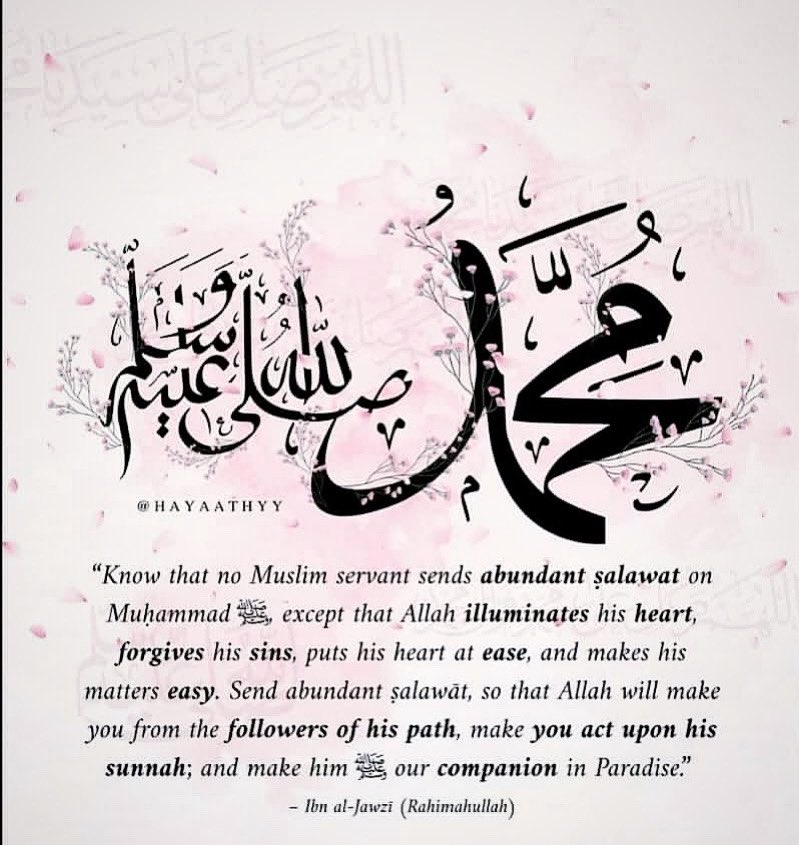 اللهم صل على سيدنا
محمد
صلى الله عليه وسلم
@HAYAATHYY
“Know that no Muslim servant sends abundant ṣalawat on
Muḥammad ﷺ, except that Allah illuminates his heart,
forgives his sins, puts his heart at ease, and makes his
matters easy. Send abundant ṣalawāt, so that Allah will make
you from the followers of his path, make you act upon his
sunnah; and make him ﷺ our companion in Paradise.”
– Ibn al-Jawzī (Rahimahullah)